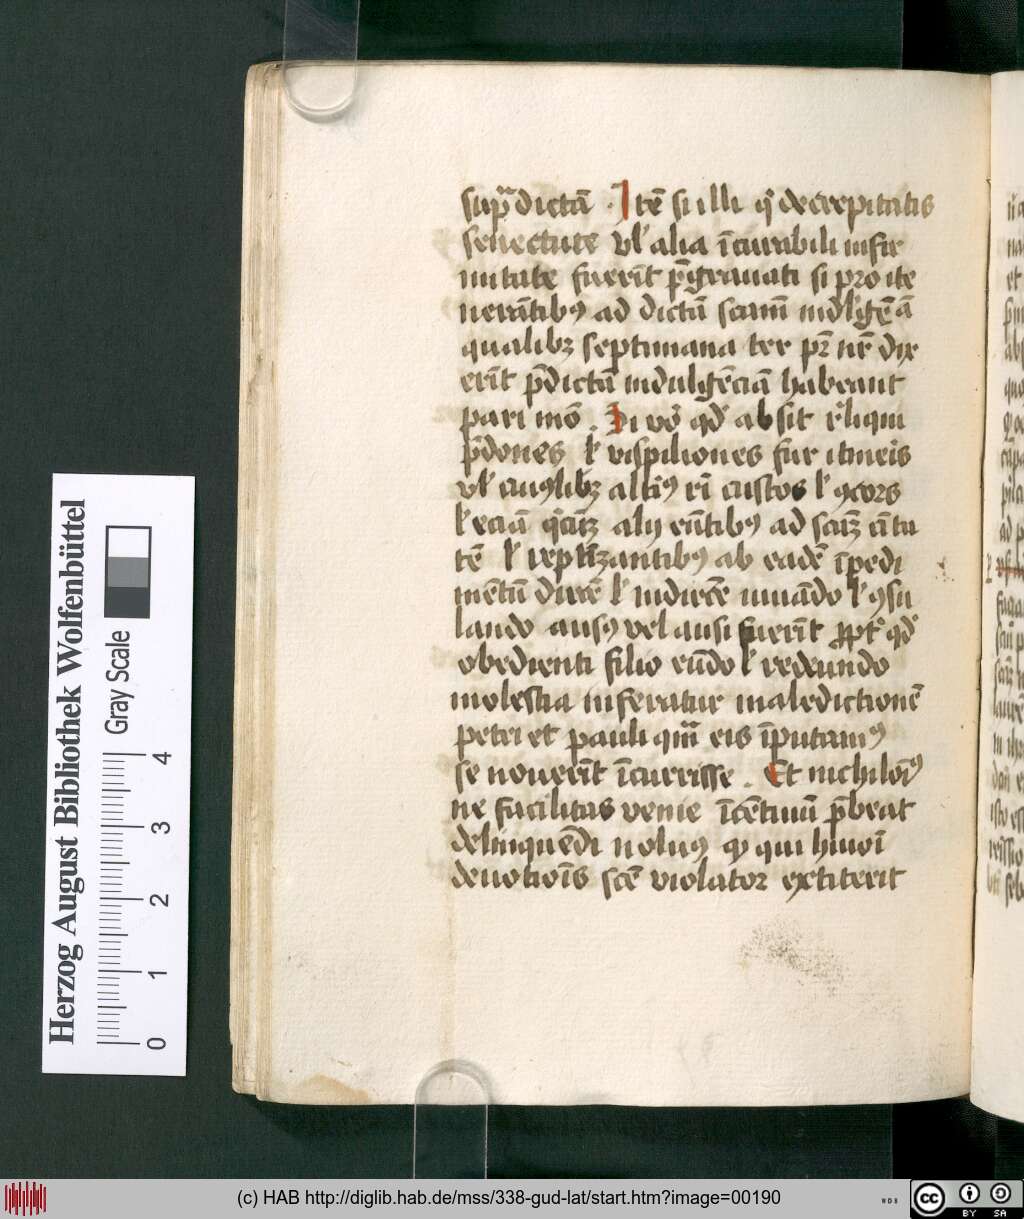 sup̄dictā . Itē si illi q̄ decrepitatis
senectute vl̕ alia īcurabili infir
mitate fuerīt p̄grauati si pro ite
nerātibꝰ ad dictā scām indl̕gē ā
qualibꝫ septimana ter pr̄ nr̄ dix
erīt p̄dictā indulgēciā habeant
pari mō . Si vō qd̕ absit r̕liqui
p̄dones l̕ vispiliones fur itineis
vl̕ cuiꝰlibꝫ altīꝰ r̄i custos l̕ ꝯcors
l̕ eciā alij eūtibꝰ ad scāꝫ ciuita
tē l̕ ab eadē īpedi
mētū dircē l̕ indircē iuuādo l̕ ꝯsu
lando ausꝰ vel ausi fuerīt ꝓpt̕ qd̕
obedienti filio eūdo l̕ redeundo
molestia inferatur maledictionē
petri et pauli quā eis īputamꝰ
se nouerīt īcurrisse . Et nichilōꝰ
ne facilitas venie īcētiuū p̄beat
delinquēdi nolūꝰ ꝙ qui huiōi
deuotiōis scē violator extiterit
Herzog August Bibliothek Wolfenbüttel
Gray Scale
0 1 2 3 4
(c) HAB http://diglib.hab.de/mss/338-gud-lat/start.htm?image=00190
WDB
cc BY SA